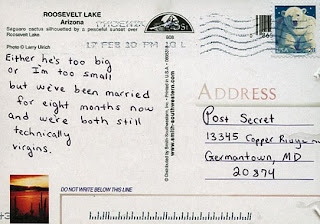 ROOSEVELT LAKE
Arizona
Saguaro cactus silhouetted by a peaceful sunset over
Roosevelt Lake.
Photo © Larry Ulrich
PHOENIX
17 FEB PM
Either he's too big
or I'm too small
but we've been married
for eight months now
and we're both still
technically
virgins.
www.smith-southwestern.com
ADDRESS
Post Secret
13345 Copper Ridge
Germantown, MD
20874
DO NOT WRITE BELOW THIS LINE